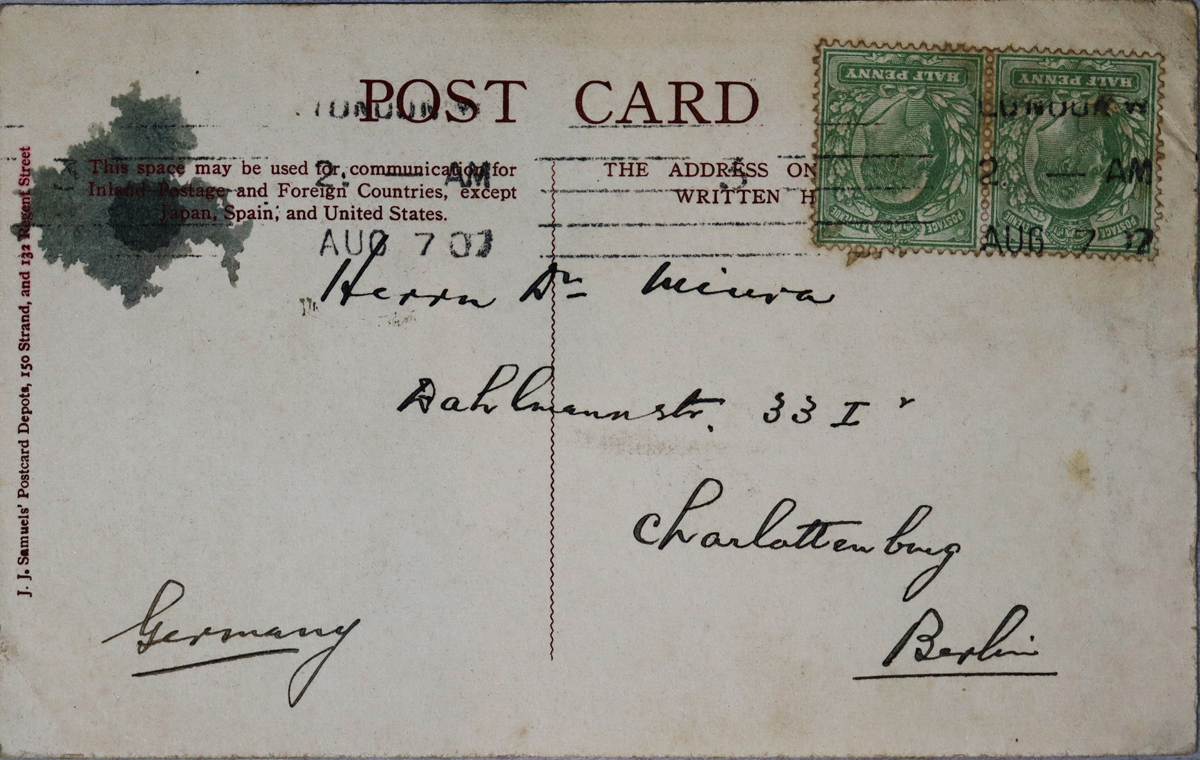 POST CARD
LONDON. W
2. — AM
AUG 7 07
This space may be used for communication for
Inland Postage and Foreign Countries, except
Japan, Spain, and United States.
THE ADDRESS ON
WRITTEN H
HALF PENNY
HALF PENNY
LONDON. W
2. — AM
AUG 7 07
POSTAGE REVENUE
POSTAGE REVENUE
Herrn Dr Miura
Dahlmannstr. 33 I r
Charlottenburg
Berlin
Germany
J. J. Samuels' Postcard Depots, 150 Strand, and 132 Regent Street